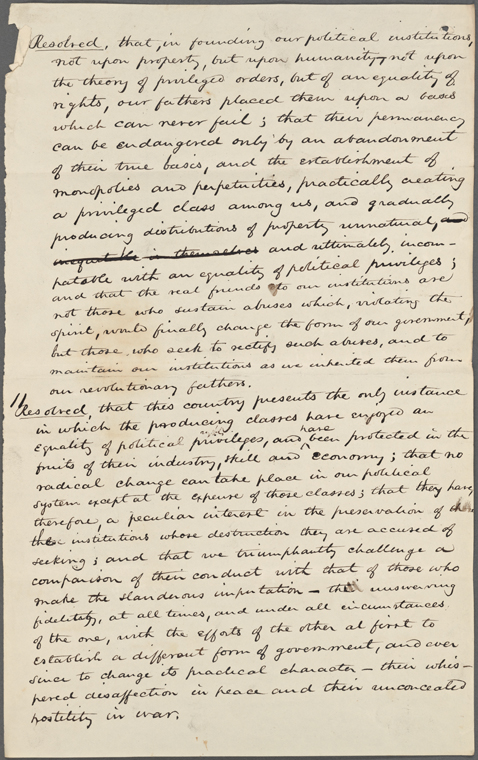 Resolved, that, in founding our political institutions,
not upon property, but upon humanity, not upon
the theory of privileged orders, but of an equality of
rights, our fathers placed them upon a basis
which can never fail; that their permanency
can be endangered only by an abandonment
of their true basis, and the establishment of
monopolies and perpetuities, practically creating
a privileged class among us, and gradually
producing distributions of property unnatural, and
inequitable in themselves and ultimately incom-
patable with an equality of political privileges;
and that the real friends to our institutions are
not those who sustain abuses which, violating the
spirit, would finally change the form of our government,
but those, who seek to rectify such abuses, and to
maintain our institutions as we inherited them from
our revolutionary fathers.
Resolved, that this country presents the only instance
in which the producing classes have enjoyed an
equality of political privileges, and have been protected in the
fruits of their industry, skill and economy; that no
radical change can take place in our political
system except at the expense of those classes; that they have,
therefore, a peculiar interest in the preservation of
institutions whose destruction they are accused of
seeking; and that we triumphantly challenge a
comparison of their conduct with that of those who
make the slanderous imputation — the unswerving
fidelity, at all times, and under all circumstances
of the one, with the efforts of the other at first to
establish a different form of government, and ever
since to change its practical character — their whis-
pered disaffection in peace and their unconcealed
hostility in war.